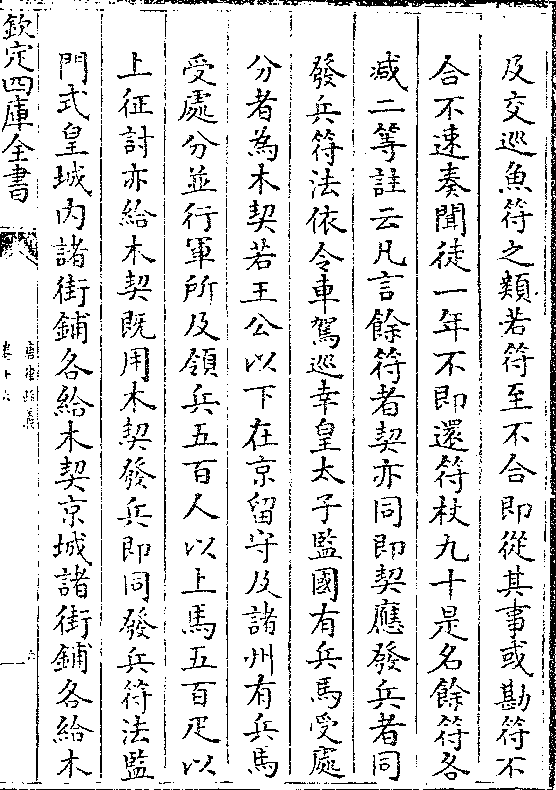 及交巡魚符之類若符至不合即從其事或勘符不
合不速奏聞徒一年不即還符杖九十是名餘符各
減二等註云凡言餘符者契亦同即契應發兵者同
發兵符法依令車駕巡幸皇太子監國有兵馬受處
分者為木契若王公以下在京留守及諸州有兵馬
受處分並行軍所及領兵五百人以上馬五百疋以
上征討亦給木契既用木契發兵即同發兵符法監
門式皇城內諸街鋪各給木契京城諸街鋪各給木
欽定四庫全書
唐律疏義
卷十六
六